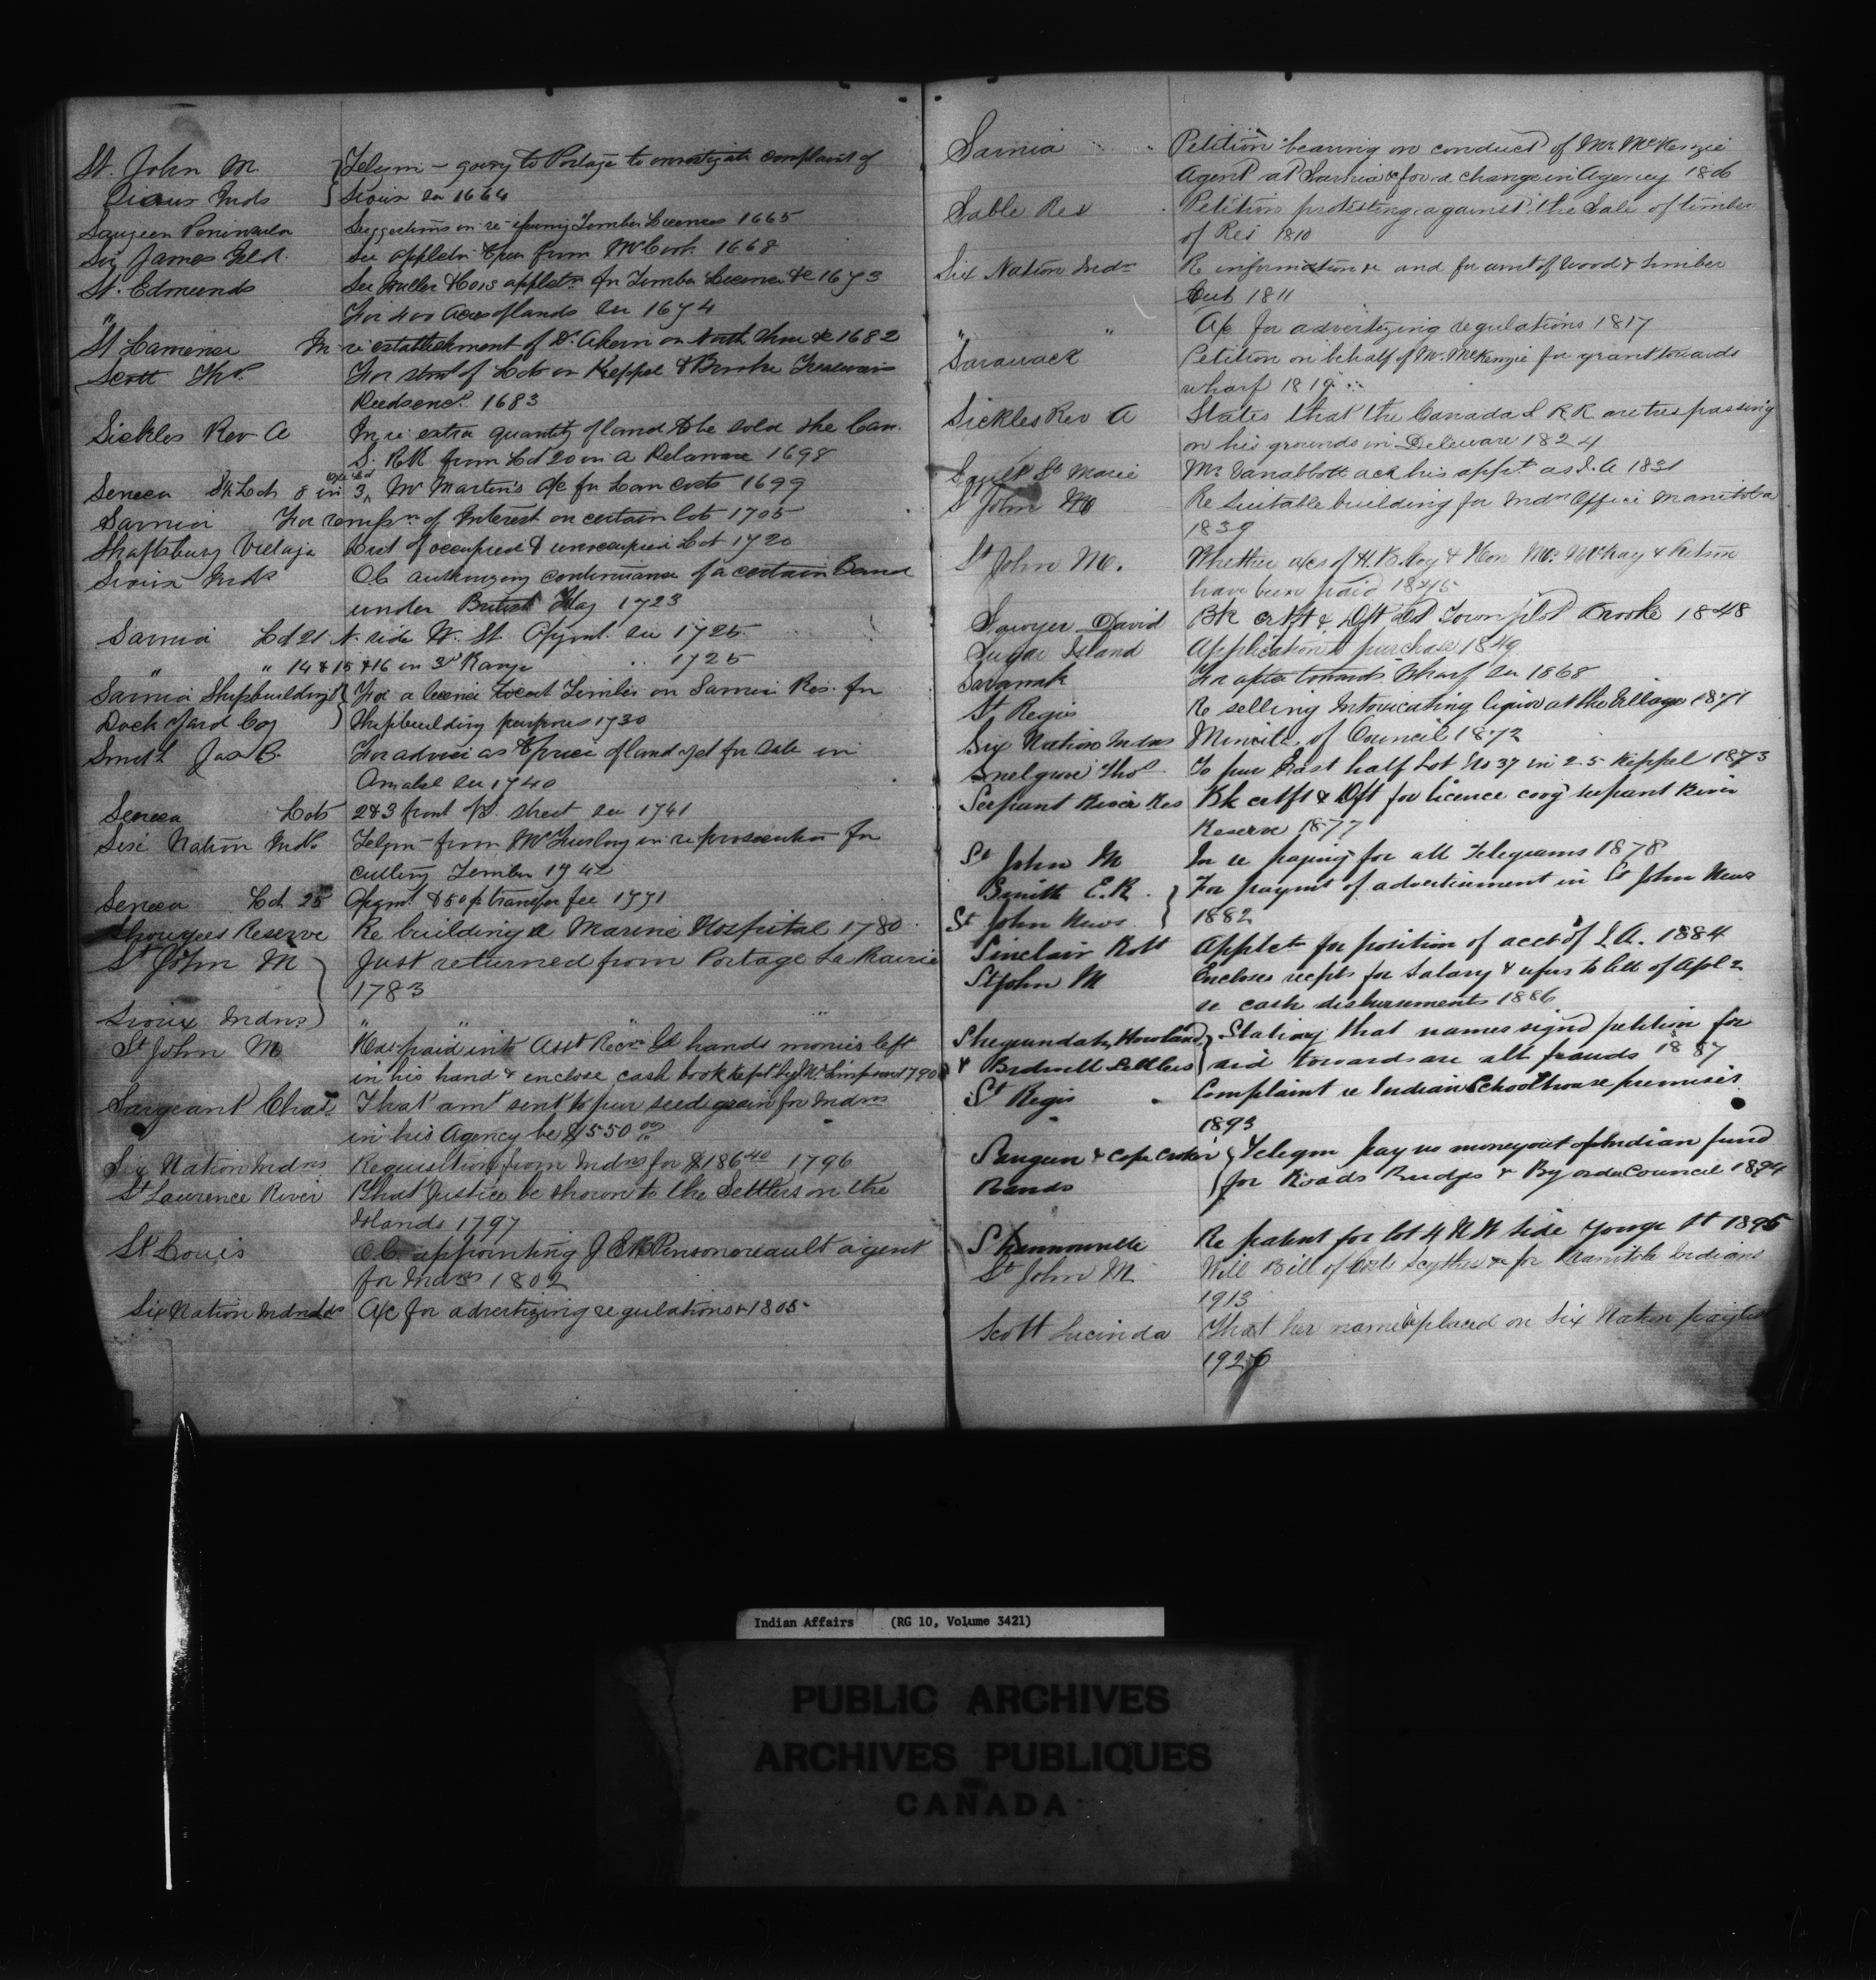 St. John M. } Telgm - going to Portage to investigate complaint of
Sioux Inds } Sioux see 1664
Saugeen Peninsula Suggestions in re issuing Timber Licences 1665
Sir James Isld. See appletn to pur from McCook 1668
St. Edmunds See Butler & Cos appletn for Timber Licence &c 1673
" For 400 Acres of lands see 1674
St. Lawrence In re establishment of Dr. Ahern on North Shore &c 1682
Scott Thos. For stmt of Lots in Keppel & Brooke Treasurers
Deeds encd. 1683
Sickles Rev A In re extra quantity of land to be sold the Can.
S. RR from Lot 20 in A Delaware 1698
Seneca S½ Lot 8 in 3, Mr Martin's a/c for Law Costs 1699
Sarnia For rempsn of Interest on certain lots 1705
Shaftsbury Village List of occupied & unoccupied Lots 1720
Sioux Inds OC authorizing continuance of a certain Band
under British Flag 1723
Sarnia Lot 21 N. side W. St. Asgmt. see 1725
" " 14 & 15 & 16 in 3d Range .. 1725
Sarnia Shipbuilding & } For a licence to cut Timber on Sarnia Res. for
Dock Yard Coy } Shipbuilding purposes 1730
Smith Jas C. For advice as to price of land yet for sale in
Amabel see 1740
Seneca Lots 2 & 3 front of S. street see 1741
Six Nation Inds. Telgm - from Mr Thorley in re prosecution for
cutting Timber 1742
Seneca Lot 25 Asgmt & 50¢ transfer fee 1771
Reserve Re building a Marine Hospital 1780
St John M } Just returned from Portage La Prairie
1783
Sioux Indns } " " "
St John M Has paid into Asst Recr Gl hands monies left
in his hand & enclose cash book kept by Mr Simpson 1790
Sargeant Chas. That amt sent to pur seed grain for Indns
in his Agency be $550 00
Six Nation Indns Requisition from Indns for $186 40 1796
St Lawrence River That Justice be shown to the Settlers on the
Islands 1797
St Louis O.C. appointing J E R Pinsonneault agent
for Indns 1802
Six Nation Indn Lds A/c for advertizing regulations 1805
Sarnia Petition bearing on conduct of Mr. McKenzie
Agent at Sarnia & for a change in Agency 1806
Sable Res Petition protesting against the Sale of timber
of Res 1810
Six Nation Indns Re information &c and for amt of wood & timber
Cut 1811
" " A/c for advertizing regulations 1817
Sarawack Petition on behalf of Mr. McKenzie for grant towards
wharf 1819
Sickles Rev A States that the Canada S R R are trespassing
on his grounds in Deleware 1824
Sault St Marie Mr Vanabbott ack his appt as I. A 1831
St John M Re Suitable building for Indn Office Manitoba
1839
St John M. Whether a/cs of H. B. Coy & Hon Mr. McKay &
have been paid 1845
Sawyer David Bk crtft & Dft Lot Town plot Brooke 1848
Sugar Island Application to purchase 1849
Savanak For towards Wharf see 1868
St Regis Re selling Intoxicating liquor at the Village 1871
Six Nation Indns Minute of Council 1872
Snelgrove Thos To pur East half Lot No 37 in 25 Keppel 1873
Serpant River Res Bk crtft & Dft for licence covg Serpant River
Reserve 1877
St John M In re paying for all Telegrams 1878
Smith E. R. } For paymt of advertisement in St John News
St John News } 1882
Sinclair Robt Appletn for position of acct of I. A. 1884
St John M Encloses recpts for Salary & refers to lett of Apl 2
re cash disbursements 1886
Sheguindah, Howland } Stating that names signd petition for
& Bidwell Settlers } aid towards are all frauds 1887
St Regis Complaint re Indian Schoolhouse premises
1893
Saugeen & Cape Croker } Telegm pay no money out of Indian fund
Bands } for Roads Bridges & By order Council 1894
Shannonville Re patent for lot 4 N W side Younge St 1895
St John M Will Bill of Scythes &c for Manitoba Indians
1913
Scott Lucinda That her name be placed on Six Nation paylist
1926
Indian Affairs (RG 10, Volume 3421)
PUBLIC ARCHIVES
ARCHIVES PUBLIQUES
CANADA